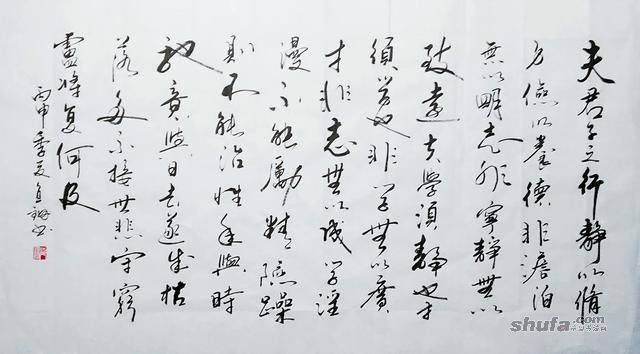 夫君子之行靜以脩
身儉以養德非澹泊
無以明志非寧靜無以
致遠夫學須靜也才
須學也非學無以廣
才非志無以成學淫
漫不能勵精險躁
則不能治性年與時
馳意與日去遂成枯
落多不接世悲守窮
廬將复何及
丙申季夏
shufa.com